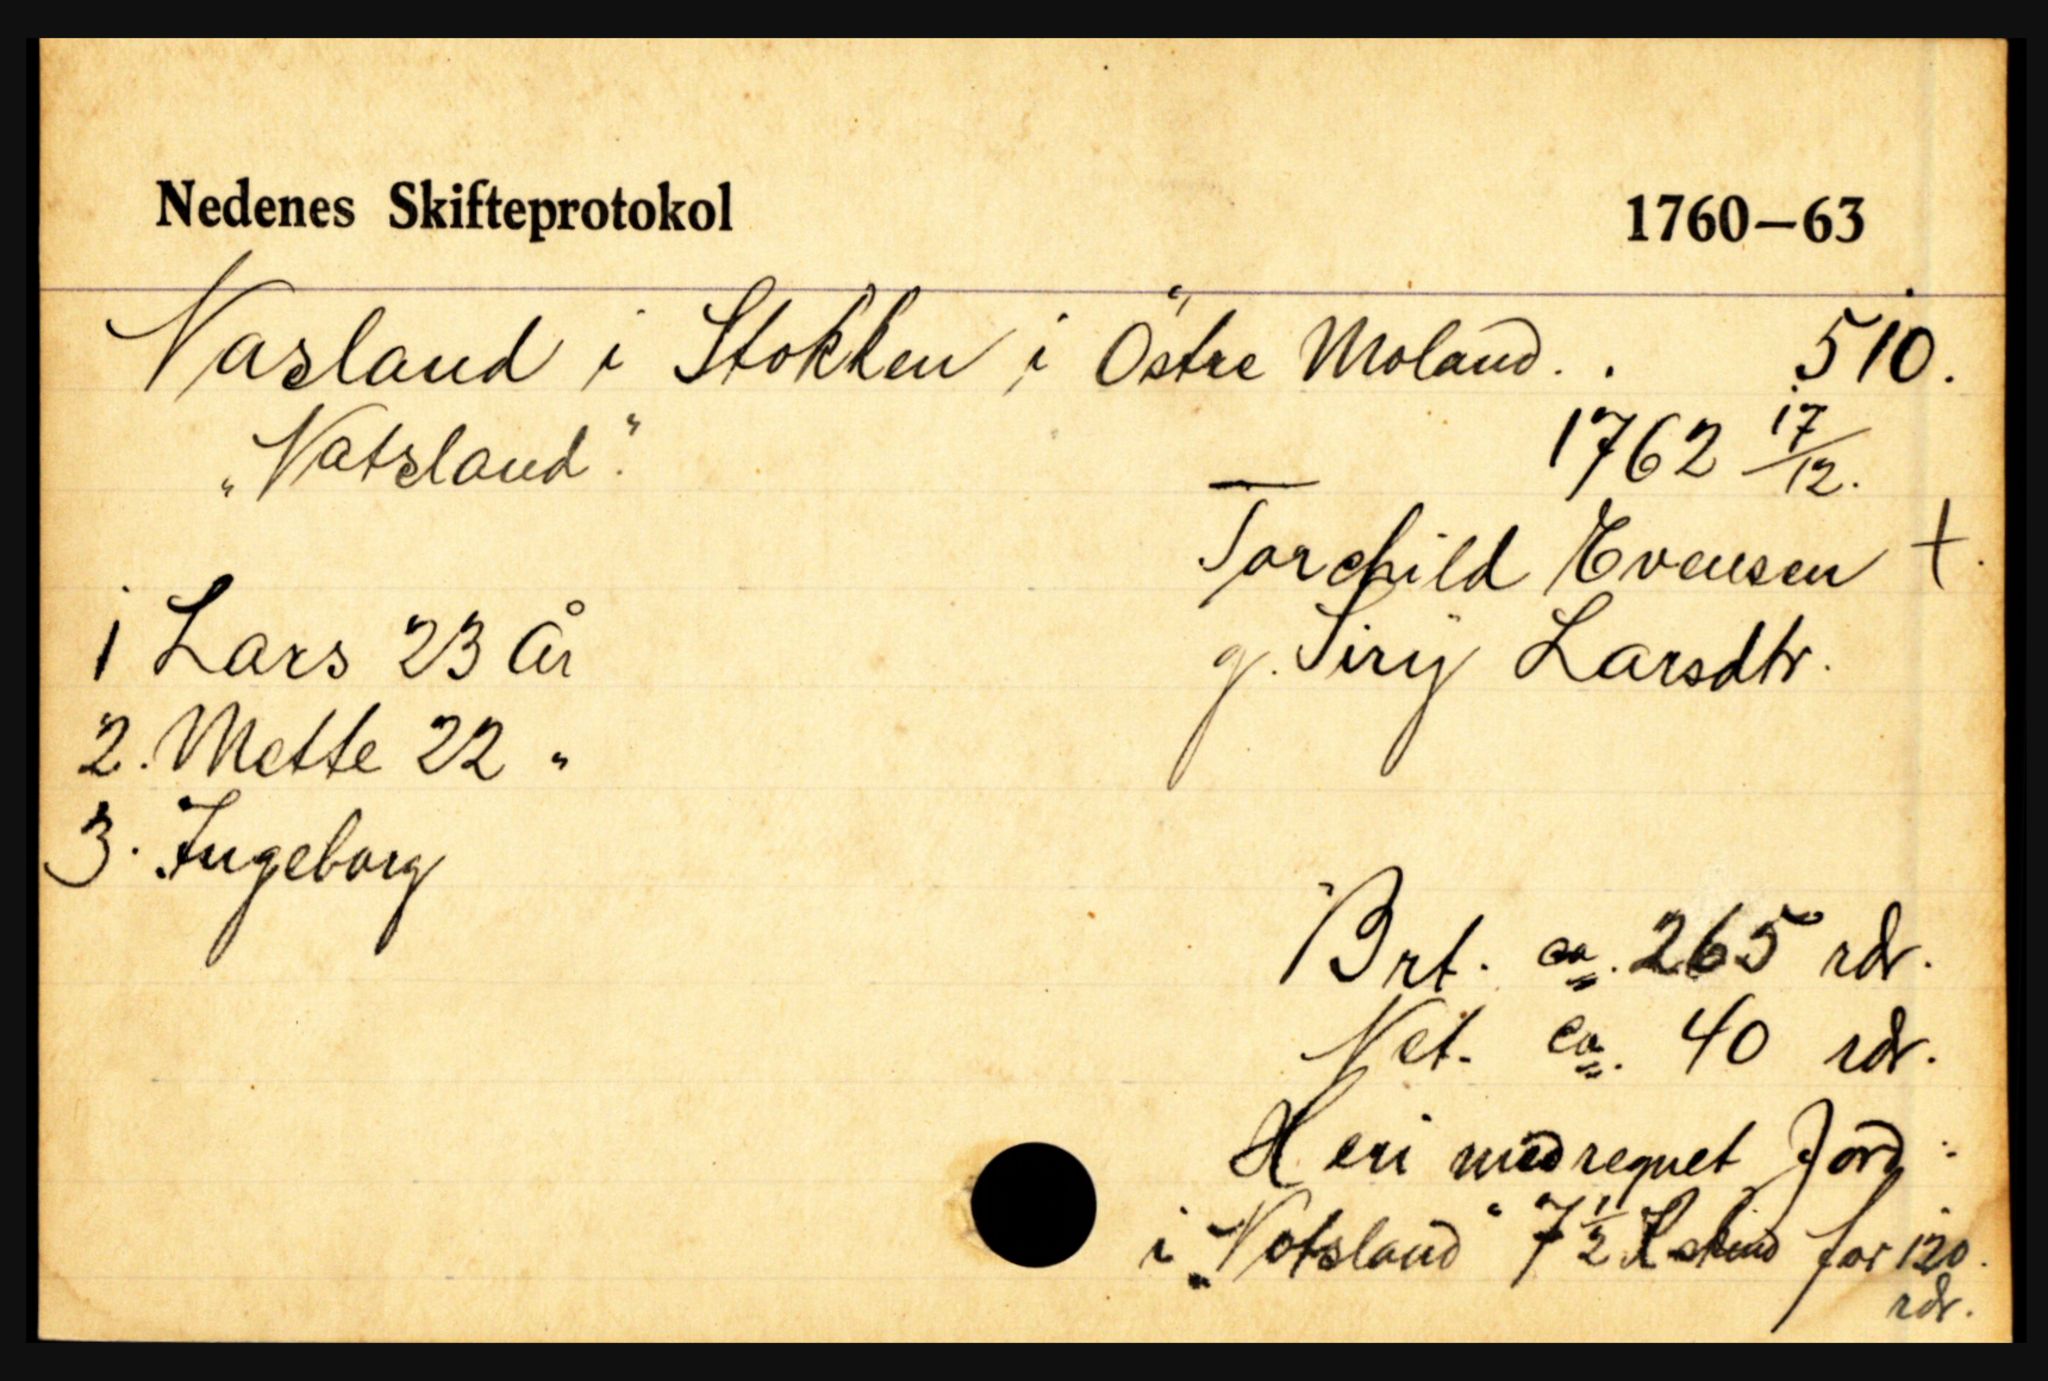 Nedenes Skifteprotokol 1760–63
Nasland i Stokken i Östre Moland. . 510.
"Natsland". 1762 17/12.
Torchild Evensen +.
1 Lars 23 år g. Sirij Larsdtr.
2. Mette 22 "
3. Ingeborg
Brt. ca. 265 rdr.
Net. ca. 40 rdr.
Heri medregnet Jord:
i "Natsland" 7 1/2 for 120.
rdr.